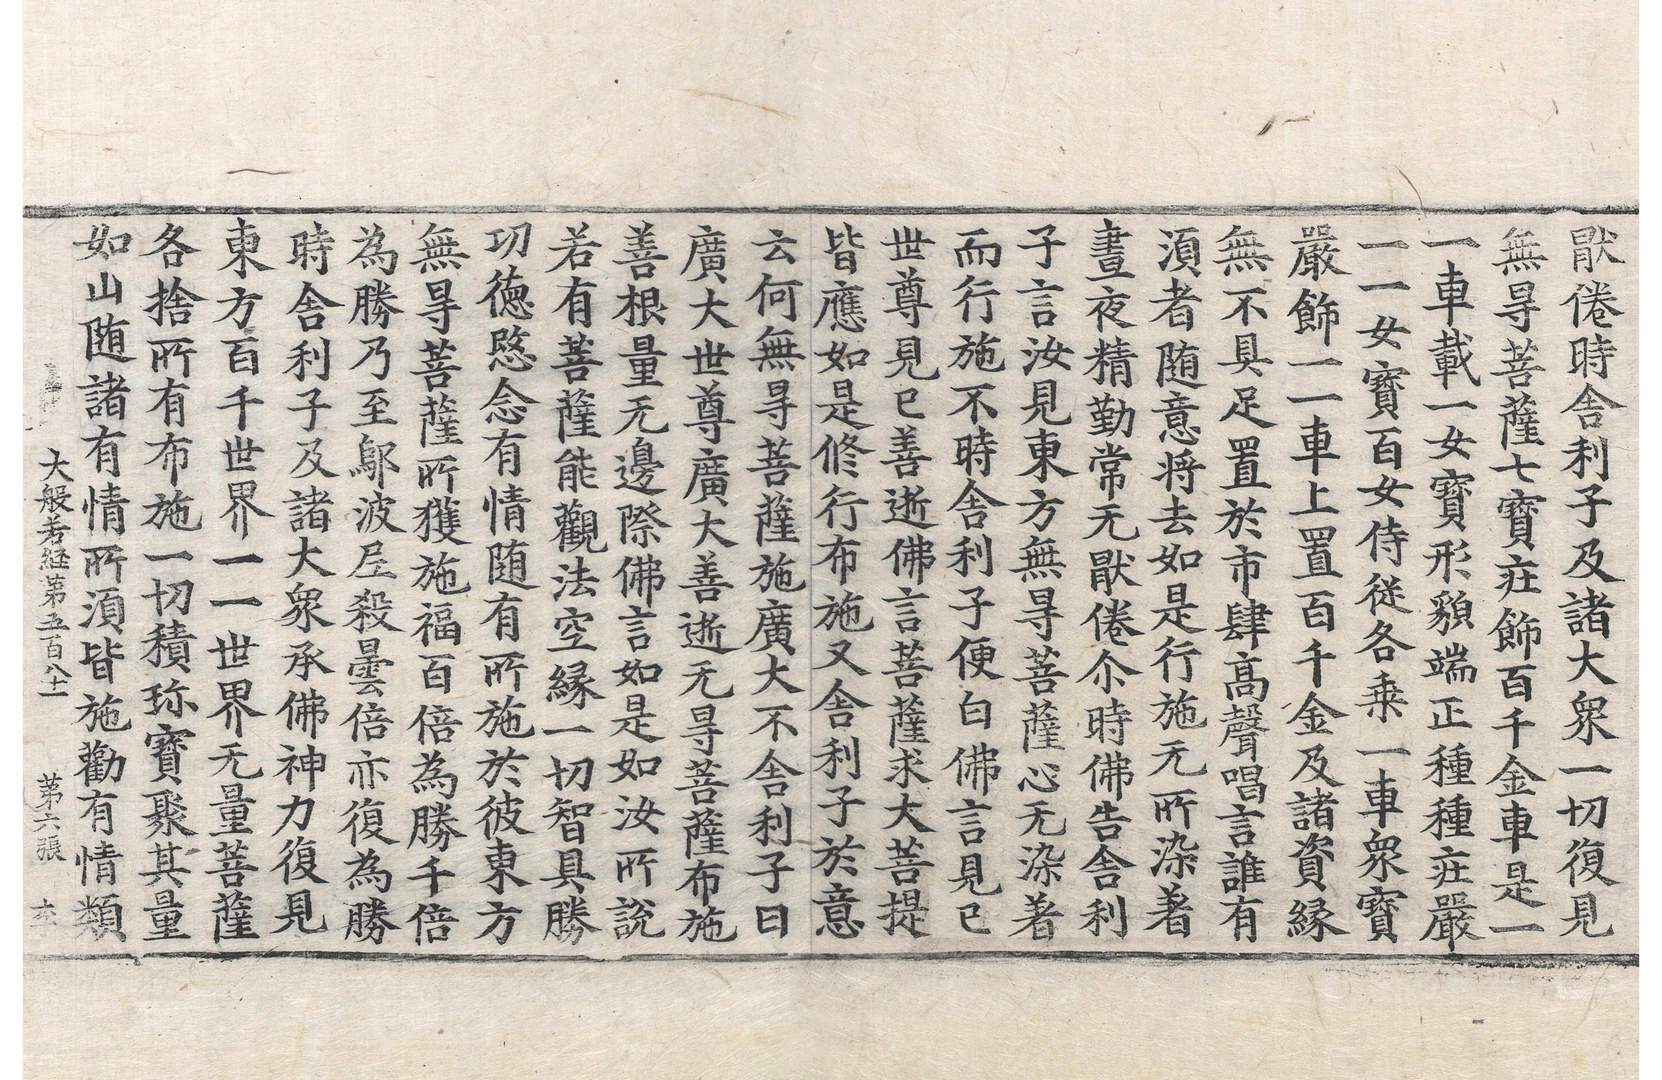 猒倦時舎利子及諸大衆一切復見
無㝵菩薩七寶莊飾百千金車是一
一車載一女寶形貌端正種種莊嚴
一一女寶百女侍從各乗一車衆寶
嚴飾一一車上置百千金及諸資縁
無不具足置於市肆髙聲唱言誰有
湏者随意将去如是行施无所染著
晝夜精勤常无猒倦尒時佛告舎利
子言汝見東方無㝵菩薩心无染著
而行施不時舎利子便白佛言見已
世尊見已善逝佛言菩薩求大菩提
皆應如是修行布施又舎利子於意
云何無㝵菩薩施廣大不舎利子曰
廣大世尊廣大善逝无㝵菩薩布施
善根量无邊際佛言如是如汝所說
若有菩薩能觀法空縁一切智具勝
功德愍念有情随有所施於彼東方
無㝵菩薩所獲施福百倍為勝千倍
為勝乃至鄔波尼殺曇倍亦復為勝
時舎利子及諸大衆承佛神力復見
東方百千世界一一世界无量菩薩
各捨所有布施一切積珎寶聚其量
如山随諸有情所湏皆施勸有情類
大般若経第五百八十一 第六張